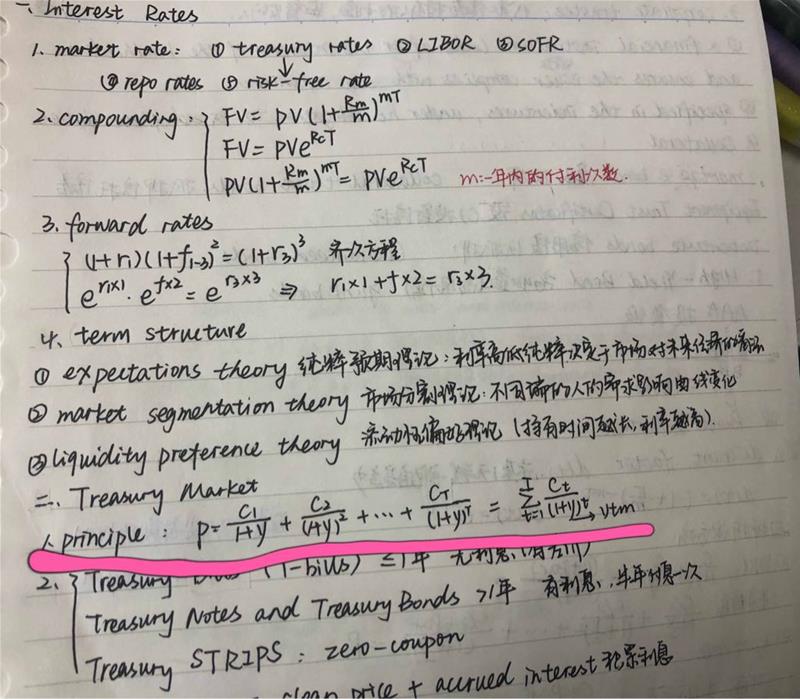 一、Interest Rates
1. market rate: ① treasury rates ② LIBOR ③ SOFR
④ repo rates ⑤ risk-free rate
2. compounding: FV = PV(1+Rm/m)^mT
FV = PVe^RcT
PV(1+Rm/m)^mT = PVe^RcT m:一年内的付利次数.
3. forward rates
(1+r1)(1+f1-3)^2=(1+r3)^3 齐次方程
e^r1×1 · e^f×2 = e^r3×3 ⇒ r1×1+f×2=r3×3.
4. term structure
① expectations theory 纯粹预期理论:利率高低纯粹决于市场对未来
② market segmentation theory 市场分割理论:不同的人的需求影响曲线变化
③ liquidity preference theory 流动性偏好理论(持有时间越长,利率越高).
二、Treasury Market
1. principle: P = C1/1+y + C2/(1+y)^2 + ··· + CT/(1+y)^T = T∑t=1 Ct/(1+y)^t → ytm
2. Treasury (T-bills) ≤1年 无利息
Treasury Notes and Treasury Bonds >1年 有利息,半年付息一次
Treasury STRIPS: zero-coupon
clean price + accrued interest 利息